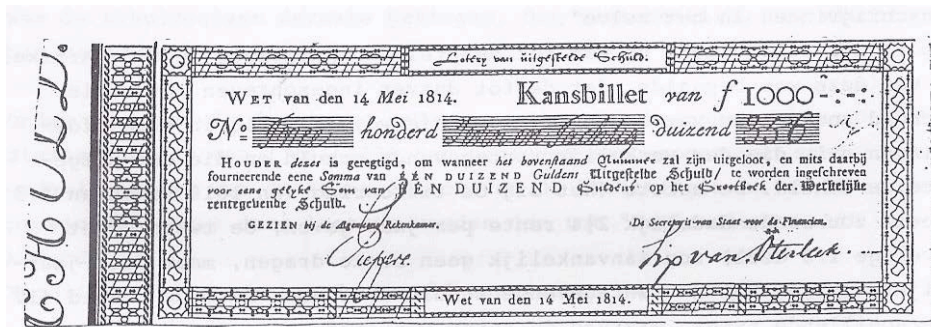 Lotery van uitgestelde Schuld.
WET van den 14 Mei 1814. Kansbillet van ƒ 1000-:-:-
No honderd en tachtig duizend 356
HOUDER dezes is geregtigd, om wanneer het bovenstaand Nummer zal zijn uitgeloot, en mits daarbij
fourneerende eene Somma van ÉÉN DUIZEND Guldens Uitgestelde Schuld/ te worden ingeschreven
voor eene gelyke Som van ÉÉN DUIZEND Guldens op het Grootboek der Werkelijke
rentegevende Schuld.
GEZIEN bij de Algemeene Rekenkamer. De Secretaris van Staat voor de Financien,
Cuypers
van
Wet van den 14 Mei 1814.